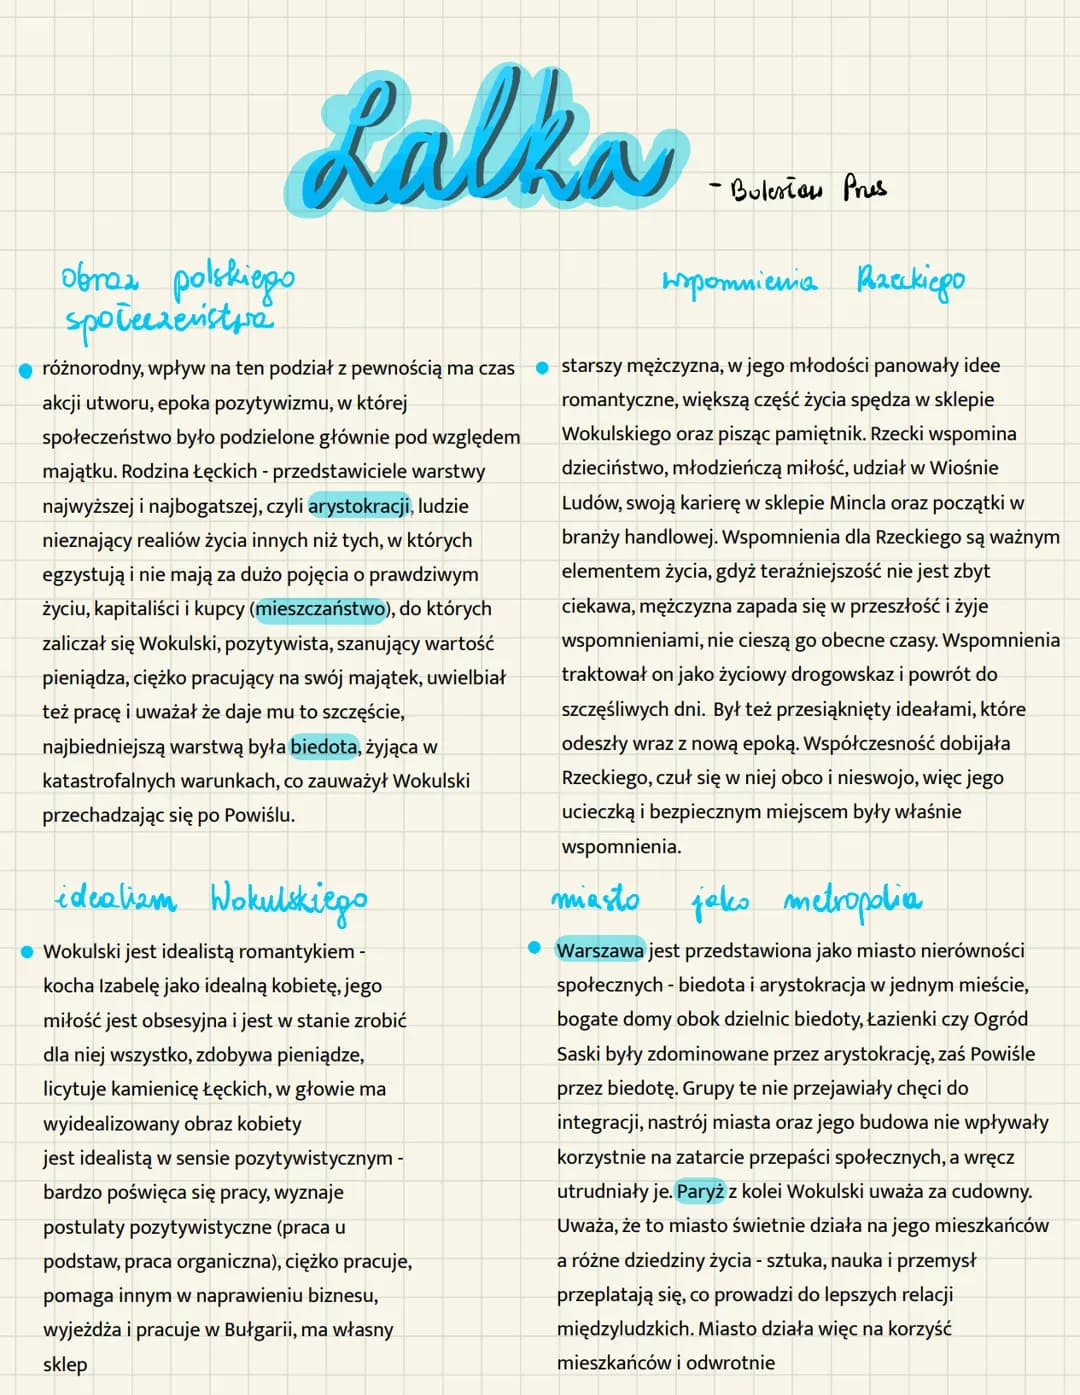 Lalka
- Bolesław Prus
obraz polskiego
społeczeństwa
różnorodny, wpływ na ten podział z pewnością ma czas
akcji utworu, epoka pozytywizmu, w której
społeczeństwo było podzielone głównie pod względem
majątku. Rodzina Łęckich - przedstawiciele warstwy
najwyższej i najbogatszej, czyli arystokracji, ludzie
nieznający realiów życia innych niż tych, w których
egzystują i nie mają za dużo pojęcia o prawdziwym
życiu, kapitaliści i kupcy (mieszczaństwo), do których
zaliczał się Wokulski, pozytywista, szanujący wartość
pieniądza, ciężko pracujący na swój majątek, uwielbiał
też pracę i uważał że daje mu to szczęście,
najbiedniejszą warstwą była biedota, żyjąca w
katastrofalnych warunkach, co zauważył Wokulski
przechadzając się po Powiślu.
wspomnienia Rzeckiego
starszy mężczyzna, w jego młodości panowały idee
romantyczne, większą część życia spędza w sklepie
Wokulskiego oraz pisząc pamiętnik. Rzecki wspomina
dzieciństwo, młodzieńczą miłość, udział w Wiośnie
Ludów, swoją karierę w sklepie Mincla oraz początki w
branży handlowej. Wspomnienia dla Rzeckiego są ważnym
elementem życia, gdyż teraźniejszość nie jest zbyt
ciekawa, mężczyzna zapada się w przeszłość i żyje
wspomnieniami, nie cieszą go obecne czasy. Wspomnienia
traktował on jako życiowy drogowskaz i powrót do
szczęśliwych dni. Był też przesiąknięty ideałami, które
odeszły wraz z nową epoką. Współczesność dobijała
Rzeckiego, czuł się w niej obco i nieswojo, więc jego
ucieczką i bezpiecznym miejscem były właśnie
wspomnienia.
idealizm Wokulskiego
Wokulski jest idealistą romantykiem -
kocha Izabelę jako idealną kobietę, jego
miłość jest obsesyjna i jest w stanie zrobić
dla niej wszystko, zdobywa pieniądze,
licytuje kamienicę Łęckich, w głowie ma
wyidealizowany obraz kobiety
jest idealistą w sensie pozytywistycznym -
bardzo poświęca się pracy, wyznaje
postulaty pozytywistyczne (praca u
podstaw, praca organiczna), ciężko pracuje,
pomaga innym w naprawieniu biznesu,
wyjeżdża i pracuje w Bułgarii, ma własny
sklep
miasto jako metropolia
Warszawa jest przedstawiona jako miasto nierówności
społecznych - biedota i arystokracja w jednym mieście,
bogate domy obok dzielnic biedoty, Łazienki czy Ogród
Saski były zdominowane przez arystokrację, zaś Powiśle
przez biedotę. Grupy te nie przejawiały chęci do
integracji, nastrój miasta oraz jego budowa nie wpływały
korzystnie na zatarcie przepaści społecznych, a wręcz
utrudniały je. Paryż z kolei Wokulski uważa za cudowny.
Uważa, że to miasto świetnie działa na jego mieszkańców
a różne dziedziny życia - sztuka, nauka i przemysł
przeplatają się, co prowadzi do lepszych relacji
międzyludzkich. Miasto działa więc na korzyść
mieszkańców i odwrotnie